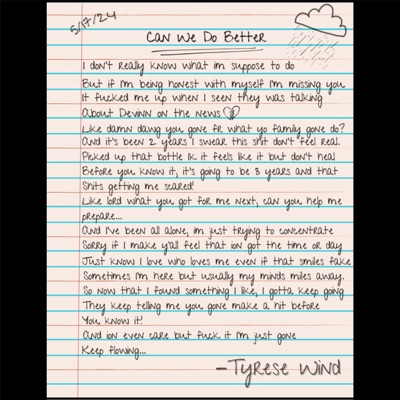 5/17/24
Can We Do Better
I don't really know what im suppose to do
But if I'm being honest with myself I'm missing you
It fucked me up when I seen they was talking
About Devinn on the news
Like damn dawg you gone fr what yo family gone do?
And it's been 2 years I swear this shit don't feel real.
Picked up that bottle Ik it feels like it but don't heal
Before you know it, it's going to be 3 years and that
Shits getting me scared!
Like lord what you got for me Next, can you help me
prepare...
And I've been all alone, im just trying to concentrate
Sorry if I make y'all feel that ion got the time or day
Just know I love who loves me even if that smiles fake
Sometimes I'm here but usually my minds miles away.
So now that I found something I like, I gotta keep going
They keep telling me you gone make a hit before
You know it!
And ion even care but fuck it I'm just gone
Keep flowing...
-Tyrese Wind